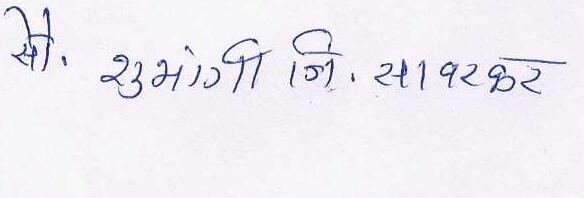 सौ. शुभांगी नि. सावरकर